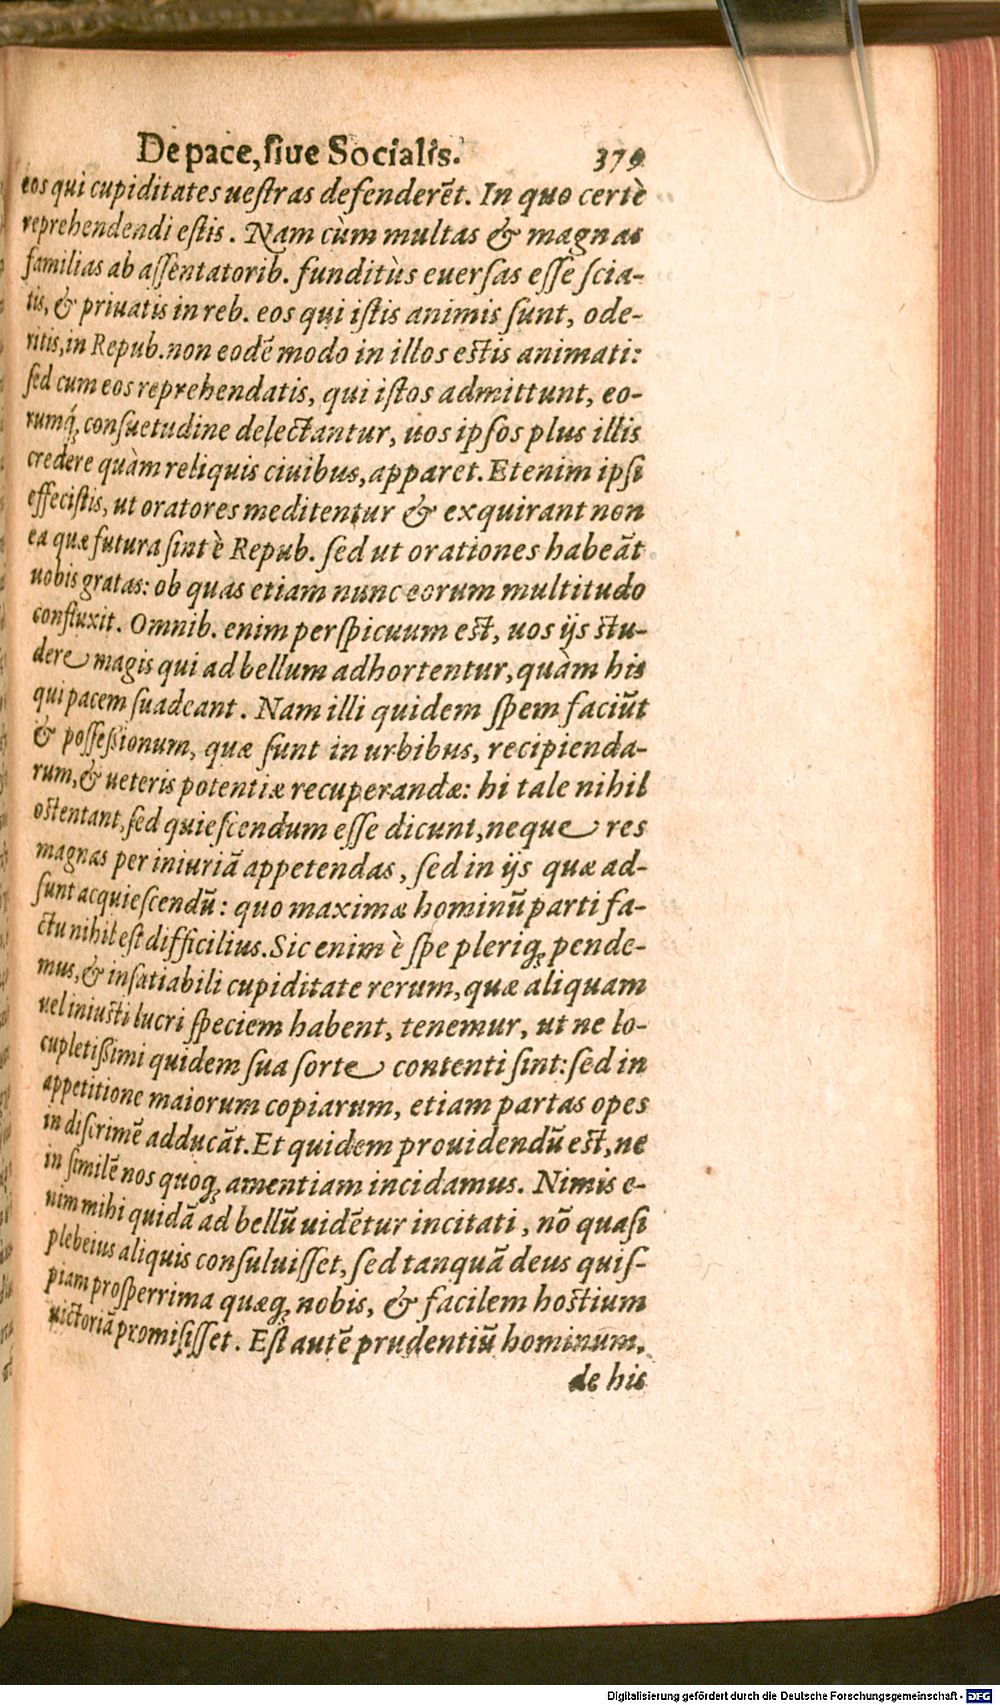 De pace, ſiue Socialis. 379
eos qui cupiditates ueſtras defenderēt. In quo certè
reprehendendi eſtis. Nam cùm multas & magnas
familias ab aſſentatorib. funditùs euerſas eſſe ſcia-
tis, & priuatis in reb. eos qui iſtis animis ſunt, ode-
ritis, in Repub. non eodē modo in illos eſtis animati:
ſed cum eos reprehendatis, qui iſtos admittunt, eo-
rumq́; conſuetudine delectantur, uos ipſos plus illis
credere quàm reliquis ciuibus, apparet. Etenim ipſi
effeciſtis, ut oratores meditentur & exquirant non
ea quæ futura ſint è Repub. ſed ut orationes habeāt
uobis gratas: ob quas etiam nunc eorum multitudo
confluxit. Omnib. enim perſpicuum eſt, uos ijs ſtu-
dere magis qui ad bellum adhortentur, quàm his
qui pacem ſuadeant. Nam illi quidem ſpem faciūt
& poſſeßionum, quæ ſunt in urbibus, recipienda-
rum, & ueteris potentiæ recuperandæ: hi tale nihil
oſtentant, ſed quieſcendum eſſe dicunt, neque res
magnas per iniuriā appetendas, ſed in ijs quæ ad-
ſunt acquieſcendū: quo maximæ hominū parti fa-
ctu nihil eſt difficilius. Sic enim è ſpe pleriq; pende-
mus, & inſatiabili cupiditate rerum, quæ aliquam
uel iniuſti lucri ſpeciem habent, tenemur, ut ne lo-
cupletißimi quidem ſua ſorte contenti ſint: ſed in
appetitione maiorum copiarum, etiam partas opes
in diſcrimē adducāt. Et quidem prouidendū eſt, ne
in ſimilē nos quoq; amentiam incidamus. Nimis e-
nim mihi quidā ad bellū uidētur incitati, nō quaſi
plebeius aliquis conſuluiſſet, ſed tanquā deus quiſ-
piam proſperrima quæq; nobis, & facilem hoſtium
uictoriā promiſiſſet. Eſt autē prudentiū hominum,
de his
Digitalisierung gefördert durch die Deutsche Forschungsgemeinschaft - DFG